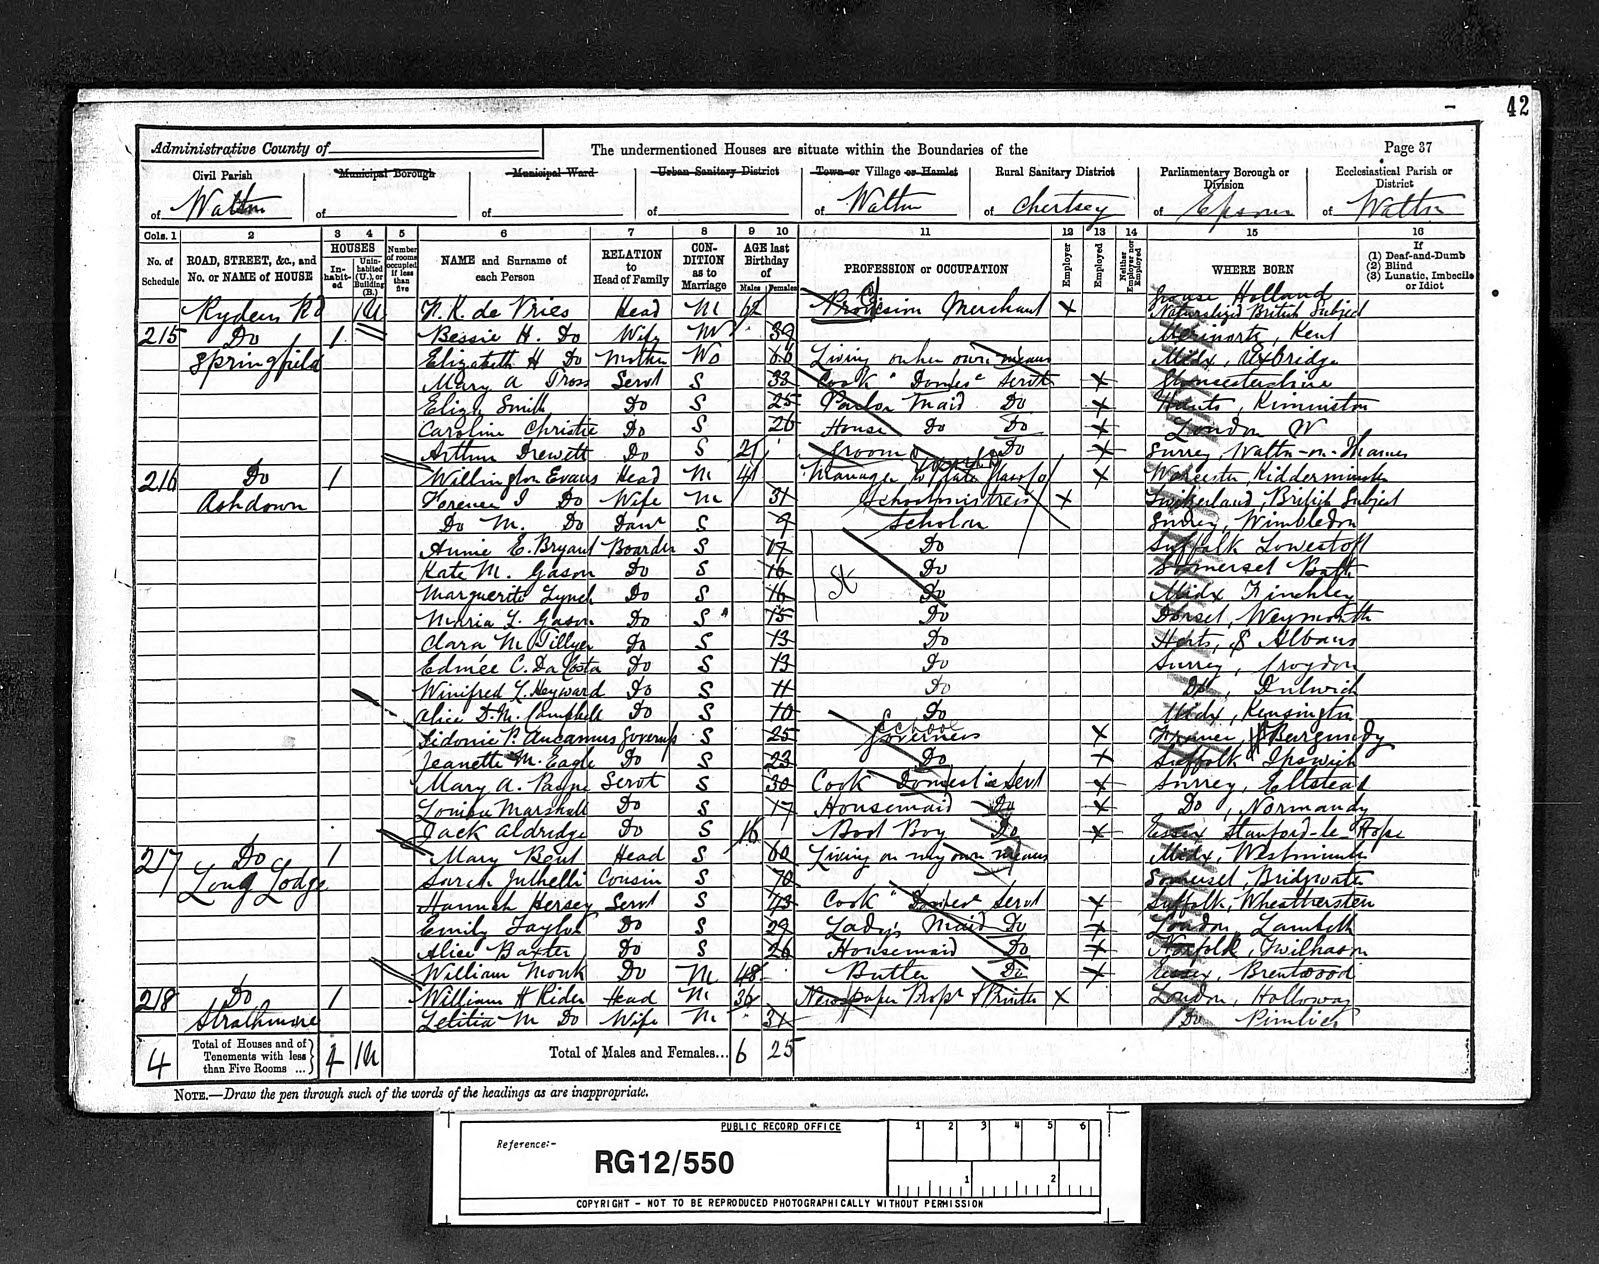 42
Administrative County of
The undermentioned Houses are situate within the Boundaries of the
Page 37
Civil Parish of Walton
Municipal Borough of
Municipal Ward of
Urban Sanitary District of
Town or Village or Hamlet of Walton
Rural Sanitary District of Chertsey
Parliamentary Borough or Division of Epsom
Ecclesiastical Parish or District of Walton
Cols. 1 2 3 4 5 6 7 8 9 10 11 12 13 14 15 16
No. of Schedule
ROAD, STREET, &c., and No. or NAME of HOUSE
HOUSES
Inhabited
Uninhabited (U.), or Building (B.)
Number of rooms occupied if less than five
NAME and Surname of each Person
RELATION to Head of Family
CONDITION as to Marriage
AGE last Birthday of
Males Females
PROFESSION or OCCUPATION
Employer
Employed
Neither Employer nor Employed
WHERE BORN
If
(1) Deaf-and-Dumb
(2) Blind
(3) Lunatic, Imbecile or Idiot
Rydens Rd 1U de Vries Head M 62 Provision Merchant X Holland Naturalized British Subject
215 Do 1 Bessie H. Do Wife M 39 Kent
Springfield Elizabeth H Do Mother Wo 66 Living on her own means Midx, Uxbridge
Mary A Servt S 33 Cook "Domes" Servt X Gloucestershire
Eliza Smith Do S 25 Parlor Maid Do X Hants,
Caroline Christie Do S 26 House Do Do X London W
Arthur Drewett Do S 21 Groom Do X Surrey Walton-on-Thames
216 Do 1 Willington Evans Head M 41 Manager to Plate Glass Co X Worcester Kidderminster
Ashdown I Do Wife M 31 Schoolmistress X Switzerland, British Subject
Do M. Do Daur S 9 Scholar Surrey, Wimbledon
Annie E. Bryant Boarder S 17 Do Suffolk Lowestoft
Kate M. Gason Do S 16 Do Somerset Bath
Marguerite Lynch Do S 16 Do Midx Finchley
Maria L. Gason Do S 15 Do Dorset, Weymouth
Clara M Tillyer Do S 13 Do Herts, St Albans
Edmée C. Da Costa Do S 13 Do Surrey, Croydon
Winifred L. Heyward Do S 11 Do Do, Dulwich
Alice D. M. Campbell Do S 10 Do Midx, Kensington
Sidonie P. Governess S 25 School Governess X France, Burgundy
Jeanette M. Eagle Do S 23 Do X Suffolk Ipswich
Mary A. Payne Servt S 30 Cook Domestic Servt X Surrey, Elstead
Louisa Marshall Do S 17 Housemaid Do X Do, Normandy
Jack Aldridge Do S 16 Boot Boy Do X Essex Stanford-le-Hope
217 Do 1 Mary Bent Head S 60 Living on my own means Midx, Westminster
Long Lodge Sarah Cousin S 70 Somerset, Bridgwater
Hannah Hersey Servt S 43 Cook "Domes" Servt X Suffolk,
Emily Taylor Do S 29 Lady's Maid Do X London Lambeth
Alice Baxter Do S 26 Housemaid Do X Norfolk,
William Monk Do M 48 Butler Do X Essex, Brentwood
218 Do 1 William H Rider Head M 36 Newspaper Propr & Printer X London, Holloway
Strathmore Letitia M Do Wife M 31 Do Pimlico
4 Total of Houses and of Tenements with less than Five Rooms ... 4 1U Total of Males and Females... 6 25
NOTE.—Draw the pen through such of the words of the headings as are inappropriate.
PUBLIC RECORD OFFICE
1 2 3 4 5 6
Reference:-
RG12/550
1 2
COPYRIGHT - NOT TO BE REPRODUCED PHOTOGRAPHICALLY WITHOUT PERMISSION